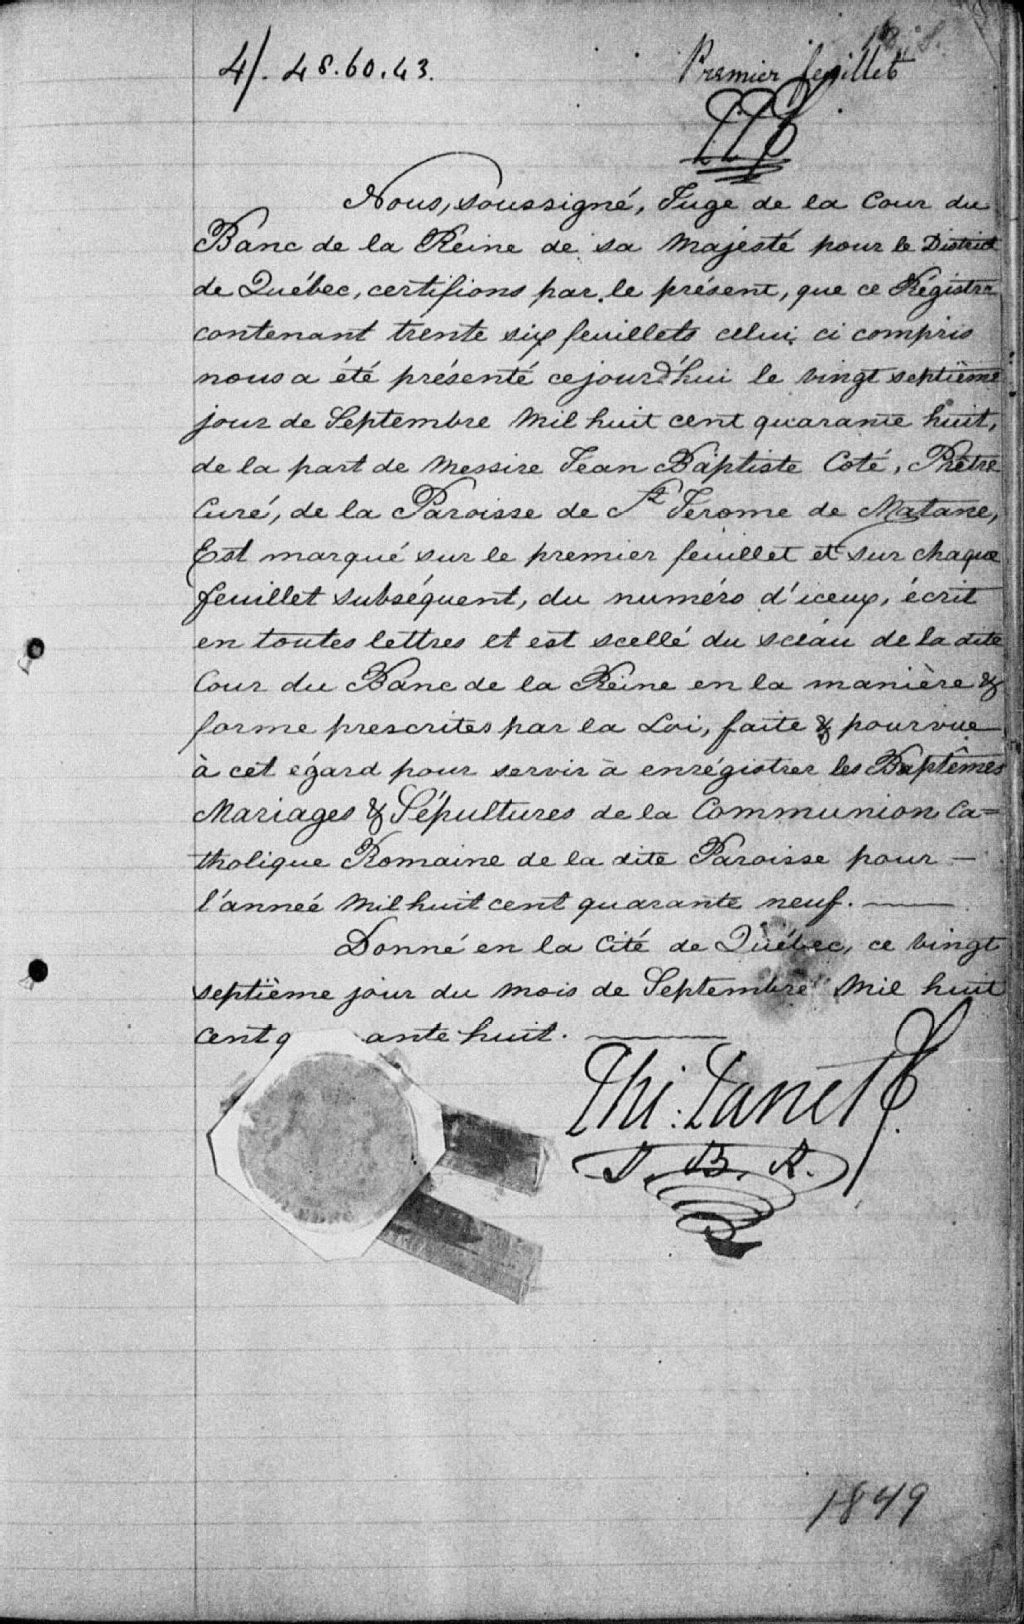 4/. 48.60.43.
Premier feuillet
Nous, soussigné, Juge de la Cour du
Banc de la Reine de sa Majesté pour le District
de Québec, certifions par le présent, que ce Régistre
contenant trente six feuillets celui ci compris
nous a été présenté cejourd'hui le vingt septième
jour de Septembre Mil huit cent quarante huit,
de la part de Messire Jean Baptiste Coté, Prêtre
Curé, de la Paroisse de St Jerome de Matane,
Est marqué sur le premier feuillet et sur chaque
feuillet subséquent, du numéro d'iceux, écrit
en toutes lettres et est scellé du sceau de la dite
Cour du Banc de la Reine en la manière &
forme prescrites par la Loi, faite & pourvue
à cet égard pour servir à enrégistrer les Baptêmes
Mariages & Sépultures de la Communion Ca=
tholique Romaine de la dite Paroisse pour —
l'année Mil huit cent quarante neuf. —
Donné en la Cité de Québec, ce vingt
septième jour du mois de Septembre Mil huit
cent q ante huit. —
J. B. R.
1849